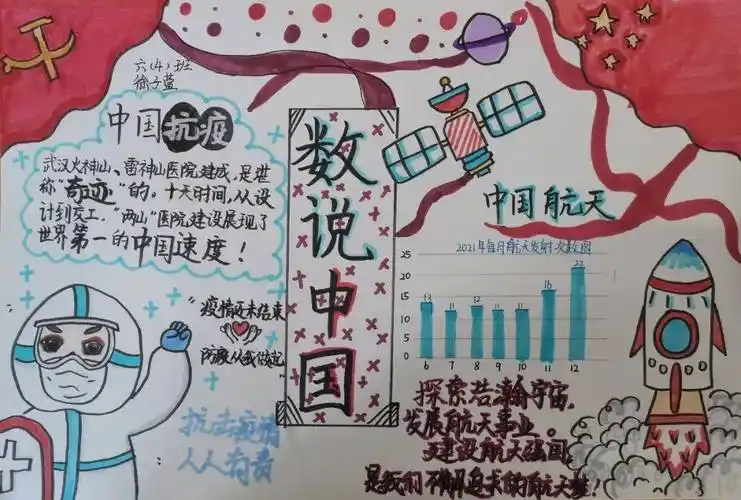 六(4)班
徐子蓝
中国抗疫
武汉火神山、雷神山医院建成,是堪
称"奇迹"的。十天时间,从设
计到交工,"两山"医院建设展现了
世界第一的中国速度!
"疫情还未结束
防疫从我做起"
抗击疫情
人人有责
数说中国
中国航天
2021年每月航天发射次数图
25
20
15
10
5
0
13
11
12
11
11
16
22
6
7
8
9
10
11
12
探索浩瀚宇宙,
发展航天事业。
建设航天强国
是我们不懈追求的航天梦!